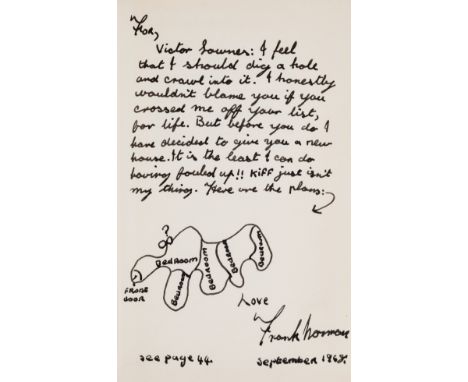 "For,
Victor Lownes: I feel
that I should dig a hole
and crawl into it. I honestly
wouldn't blame you if you
crossed me off your list,
for life. But before you do I
have decided to give you a new
house. It is the least I can do
having fouled up!! Kiff just isn't
my thing. Here are the plans:-
BEDROOM
BEDROOM
BEDROOM
BEDROOM
BEDROOM
FRONT
DOOR
Love
Frank Norman
see page 44.
September 1968.